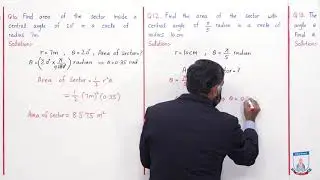 Q16: Find area of the sector inside a
central angle of 20° in a circle of
radius 7m.
Solution:
r = 7m , θ = 20 , Area of sector = ?
θ = 0.35 rad
Area of Sector = 1/2 r²θ
= 1/2 (7m)² (0.35)
Area of Sector = 8.575 m²
Q.12. Find the area of the sector with
central angle of π/5 radian in a circle of
radius 10cm
Solution:
r = 10cm , θ = π/5 radian
θ =
= ?
θ = 0.
The
angle is
Find a
Solution